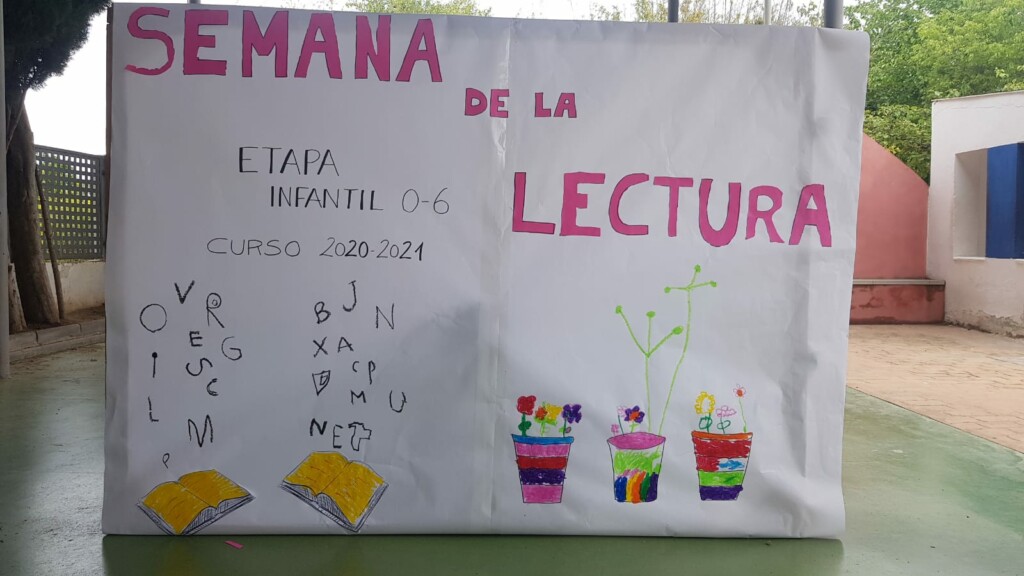 SEMANA
DE LA
LECTURA
ETAPA
INFANTIL 0-6
CURSO 2020-2021
V
O R
E G
I S
C
L
M
P
J
B N
X A
C P
D M U
N E T